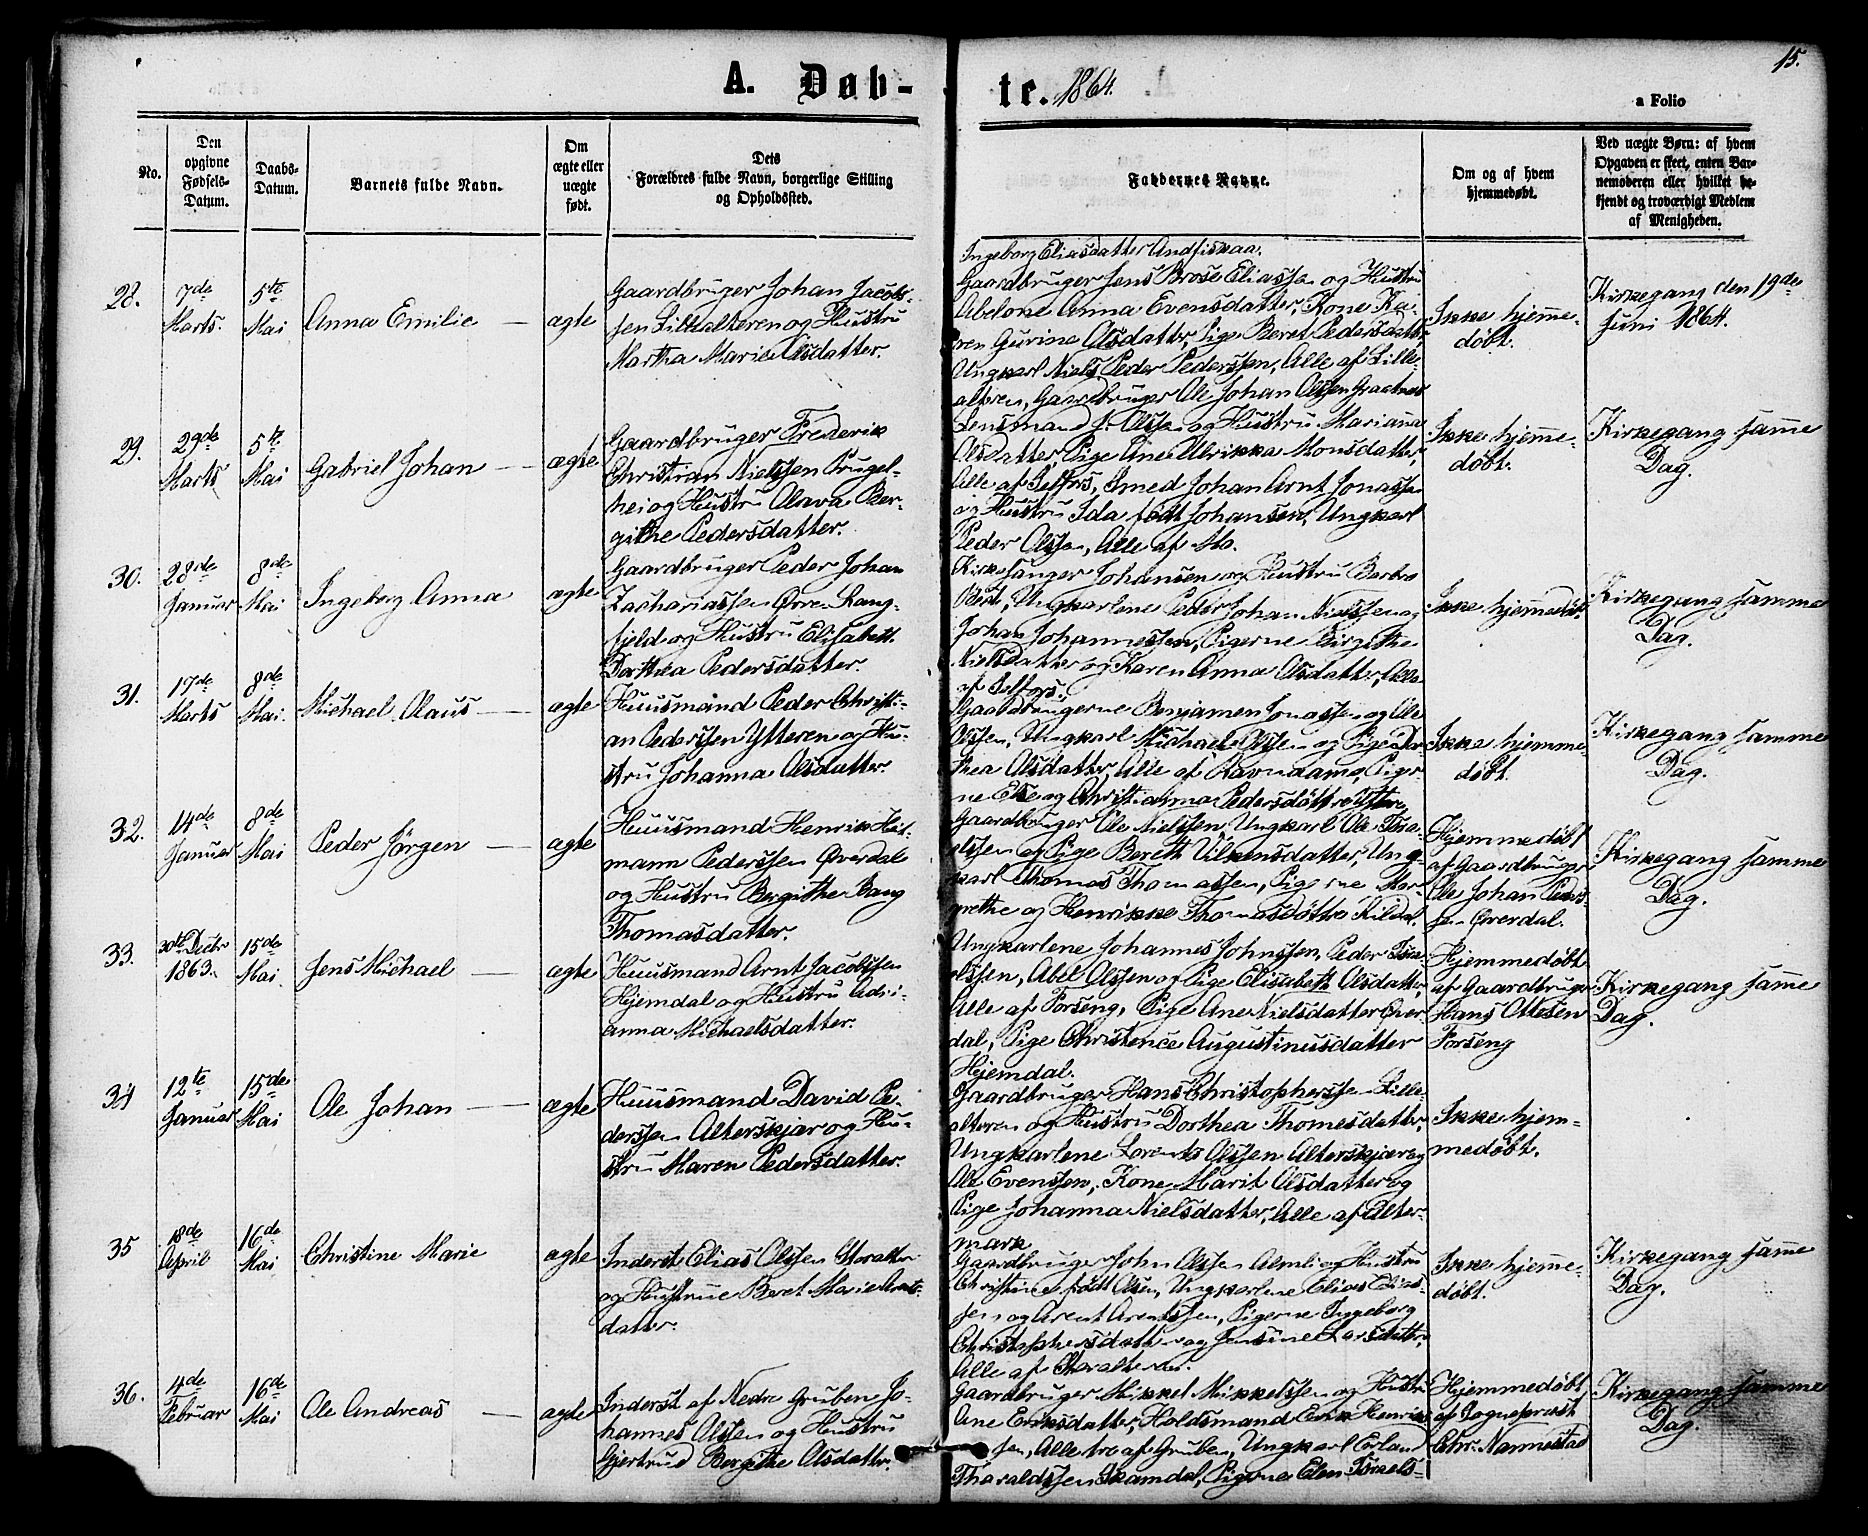 15.
A. Døb-
te. 1864.
a Folio
No.
Den
opgivne
Fødsels-
Datum.
Daabs-
Datum.
Barnets fulde Navn.
Om
ægte eller
uægte
født.
Dets
Forældres fulde Navn, borgerlige Stilling
og Opholdssted.
Faddernes Navne.
Om og af hvem
hjemmedøbt.
Ved uægte Børn: af hvem
Opgaven er skeet, enten Bar-
nemoderen eller hvilket be-
kjendt og troværdigt Medlem
af Menigheden.
28.
7de
Marts.
5te
Mai
Anna Emilie
ægte
Gaardbruger Johan Jacobs-
sen Lillealteren og Hustru
Martha Marie Olsdatter.
Ingeborg Eliasdatter Andfiskaa.
Gaardbruger Jens Brose Eliassen og Hustru
Abelone Anna Evensdatter, Kone Ka-
ren Gurine Olsdatter, Pige Beret Pedersdatter,
Ungkarl Niels Peder Pederssen, Alle af Lille-
alteren, Gaardbruger Ole Johan Olssen Graatnes
Ikke hjemme-
døbt.
Kirkegang den 19de
Juni 1864.
29.
29de
Marts
5te
Mai
Gabriel Johan
ægte
Gaardbruger Frederik
Christian Nielssen Prugel-
hei og Hustru Olava Ber-
githe Pedersdatter.
Lensmand J. Olssen og Hustru Mariana
Olsdatter, Pige Ane Ulrikka Monsdatter,
Alle af Selfors, Smed Johan Arnt Jonassen
og Hustru Ida født Johansen, Ungkarl
Peder Olssen, Alle af Mo.
Ikke hjemme-
døbt.
Kirkegang samme
Dag.
30.
28de
Januar
8de
Mai
Ingeborg Anna
ægte
Gaardbruger Peder Johan
Zachariassen Øvre Lang-
fjeld og Hustru Elisabeth
Dorthea Pedersdatter.
Kirkesanger Johansen og Hustru Berbro
Olsdt, Ungkarlene Peder Johan Nielssen og
Johan Johannessen, Pigerne Birgithe
Nielsdatter og Karen Anna Olsdatter, Alle
af Selfors.
Ikke hjemmedøbt
Kirkegang samme
Dag.
31.
17de
Marts
8de
Mai.
Michael Olaus
ægte
Huusmand Peder Christi-
an Pederssen Ytteren og Hu-
stru Johanna Olsdatter.
Gaardbrugerne Benjamen Jonassen og Ole
Olssen, Ungkarl Michael Olssen og Pige Dor-
thea Olsdatter, Alle af Ravndamo, Piger-
ne Else og Christianna Pedersdøttre Ytteren,
Ikke hjemme-
døbt.
Kirkegang samme
Dag.
32.
14de
Januar
8de
Mai
Peder Jørgen
ægte
Huusmand Henrik Heit-
mann Pederssen Øverdal
og Hustru Bergithe Bang
Thomasdatter.
Gaardbruger Ole Nielssen, Ungkarl Ole Isra-
elssen og Pige Bereth Vilhensdatter, Ung-
karl Thomas Thomassen, Pigerne Mar-
grethe og Henrikke Thomasdøttre Kildal.
Hjemmedøbt
af Gaardbruger
Ole Johan Peders-
sen Øverdal.
Kirkegang samme
Dag.
33.
30te Decbr
1863.
15de
Mai.
Jens Michael
ægte
Huusmand Arnt Jacobssen
Hjemdal og Hustru Adri-
anna Michaelsdatter.
Ungkarlene Johannes Johnssen, Peder Isra-
elssen, Abel Olssen og Pige Elisabeth Olsdatter,
Alle af Forseng, Pige Ane Nielsdatter Øver-
dal, Pige Christence Augustinusdatter
Hjemdal.
Hjemmedøbt
af Gaardbruger
Hans Ottesen
Forseng
Kirkegang samme
Dag.
34
12te
Januar
15de
Mai
Ole Johan
ægte
Huusmand David Pe-
derssen Alterskjær og Hu-
stru Maren Pedersdatter.
Gaardbruger Hans Christopherssen Lille-
alteren og Hustru Dorthea Thomesdatter,
Ungkarlene Lorents Olssen Alterskjær og
Ole Evenssen, Kone Marit Olsdatter og
Pige Johanna Nielsdatter, Alle af Alter-
mark
Ikke hjem-
medøbt.
35
18de
April
16de
Mai
Christine Marie
ægte
Inderst Elias Olssen Storalter
og Hustrue Beret Marie Mats-
datter.
Gaardbruger John Olssen Almli og Hustru
Christine født Olsen, Ungkarlene Elias Elias-
sen og Arent Arentssen, Pigerne Ingeborg
Christophersdatter og Jensine Larsdatter,
Alle af Storalteren.
Ikke hjemme-
døbt.
Kirkegang samme
Dag.
36.
4de
Februar
16de
Mai
Ole Andreas
ægte
Inderst af Nedre Gruben Jo-
hannes Olssen og Hustru
Gjertrud Bergithe Olsdatter.
Gaardbruger Mikkel Mikkelssen og Hustru
Ane Eriksdatter, Holdsmand Erik Henrik-
sen, Alle tre af Gruben, Ungkarl Erland
Tharaldssen Skamdal, Pigerne Elen Israels-
Hjemmedøbt
af Sognepræst
Chr. Nannestad
Kirkegang samme
Dag.